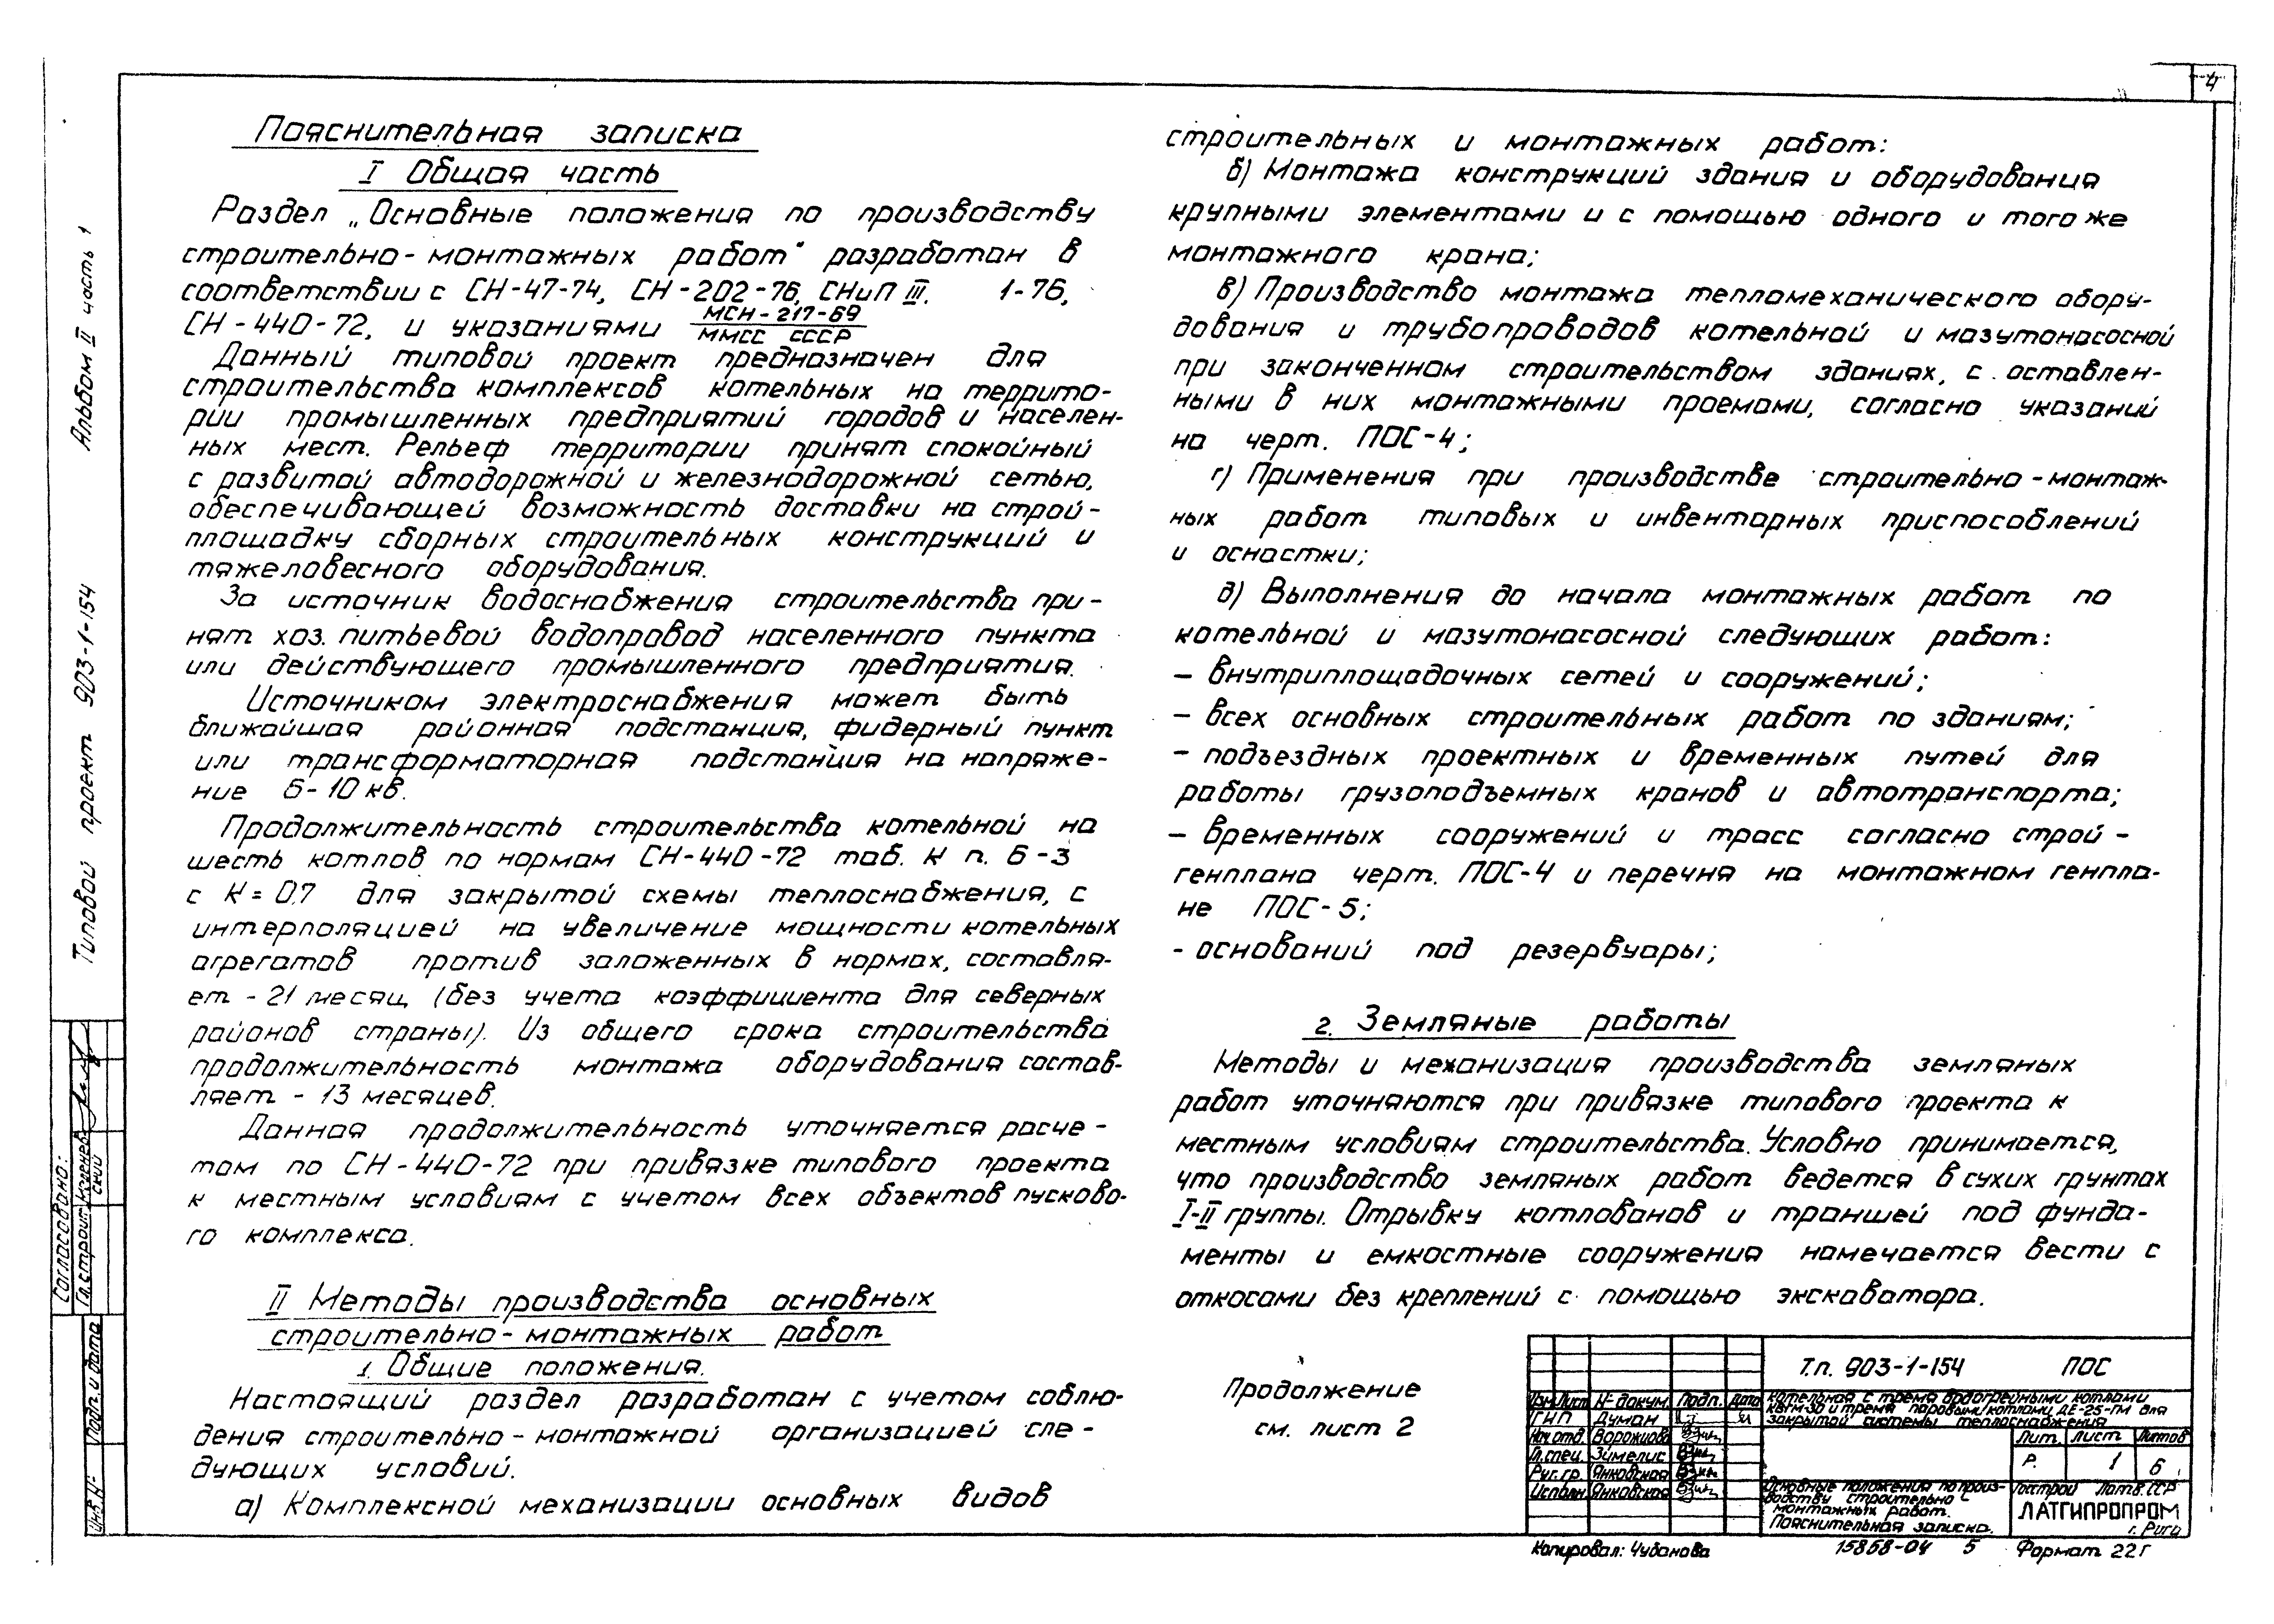 4
Альбом II часть 1
Типовой проект 903-1-154
Согласовано:
Гл.строит.
Подп. и дата
Инв. №
Пояснительная записка
I Общая часть
Раздел „Основные положения по производству
строительно-монтажных работ“ разработан в
соответствии с СН-47-74, СН-202-76, СНиП III. 1-76,
СН-440-72, и указаниями МСН-217-69
ММСС СССР
Данный типовой проект предназначен для
строительства комплексов котельных на террито-
рии промышленных предприятий городов и населен-
ных мест. Рельеф территории принят спокойный
с развитой автодорожной и железнодорожной сетью,
обеспечивающей возможность доставки на строй-
площадку сборных строительных конструкций и
тяжеловесного оборудования.
За источник водоснабжения строительства при-
нят хоз. питьевой водопровод населенного пункта
или действующего промышленного предприятия.
Источником электроснабжения может быть
ближайшая районная подстанция, фидерный пункт
или трансформаторная подстанция на напряже-
ние 6-10 кв.
Продолжительность строительства котельной на
шесть котлов по нормам СН-440-72 таб. К п. 6-3
с К=0,7 для закрытой схемы теплоснабжения, с
интерполяцией на увеличение мощности котельных
агрегатов против заложенных в нормах, составля-
ет - 21 месяц (без учета коэффициента для северных
районов страны). Из общего срока строительства
продолжительность монтажа оборудования состав-
ляет - 13 месяцев.
Данная продолжительность уточняется расче-
том по СН-440-72 при привязке типового проекта
к местным условиям с учетом всех объектов пусково-
го комплекса.
II Методы производства основных
строительно-монтажных работ
1. Общие положения.
Настоящий раздел разработан с учетом соблю-
дения строительно-монтажной организацией сле-
дующих условий.
а) Комплексной механизации основных видов
строительных и монтажных работ:
б) Монтажа конструкций здания и оборудования
крупными элементами и с помощью одного и того же
монтажного крана;
в) Производство монтажа тепломеханического обору-
дования и трубопроводов котельной и мазутонасосной
при законченном строительством зданиях, с оставлен-
ными в них монтажными проемами, согласно указаний
на черт. ПОС-4;
г) Применения при производстве строительно-монтаж-
ных работ типовых и инвентарных приспособлений
и оснастки;
д) Выполнения до начала монтажных работ по
котельной и мазутонасосной следующих работ:
- внутриплощадочных сетей и сооружений;
- всех основных строительных работ по зданиям;
- подъездных проектных и временных путей для
работы грузоподъемных кранов и автотранспорта;
- временных сооружений и трасс согласно строй-
генплана черт. ПОС-4 и перечня на монтажном генпла-
не ПОС-5;
- оснований под резервуары;
2. Земляные работы
Методы и механизация производства земляных
работ уточняются при привязке типового проекта к
местным условиям строительства. Условно принимается,
что производство земляных работ ведется в сухих грунтах
I-II группы. Отрывку котлованов и траншей под фунда-
менты и емкостные сооружения намечается вести с
откосами без креплений с помощью экскаватора.
Продолжение
см. лист 2
Т.п. 903-1-154 ПОС
Изм Лист № докум. Подп. Дата
ГИП Думан
Нач отд. Ворожцова
Гл.спец. Зимелис
Рук.гр. Янковская
Исполн. Янковская
Котельная с тремя водогрейными котлами
КВГМ-30 и тремя паровыми котлами ДЕ-25-ГМ для
закрытой системы теплоснабжения
Лит. Лист Листов
Р. 1 6
Основные положения по произ-
водству строительно-
монтажных работ.
Пояснительная записка.
Госстрой Латв.ССР
ЛАТГИПРОПРОМ
г. Рига
Копировал: Чубанова 15868-04 5 Формат 22г